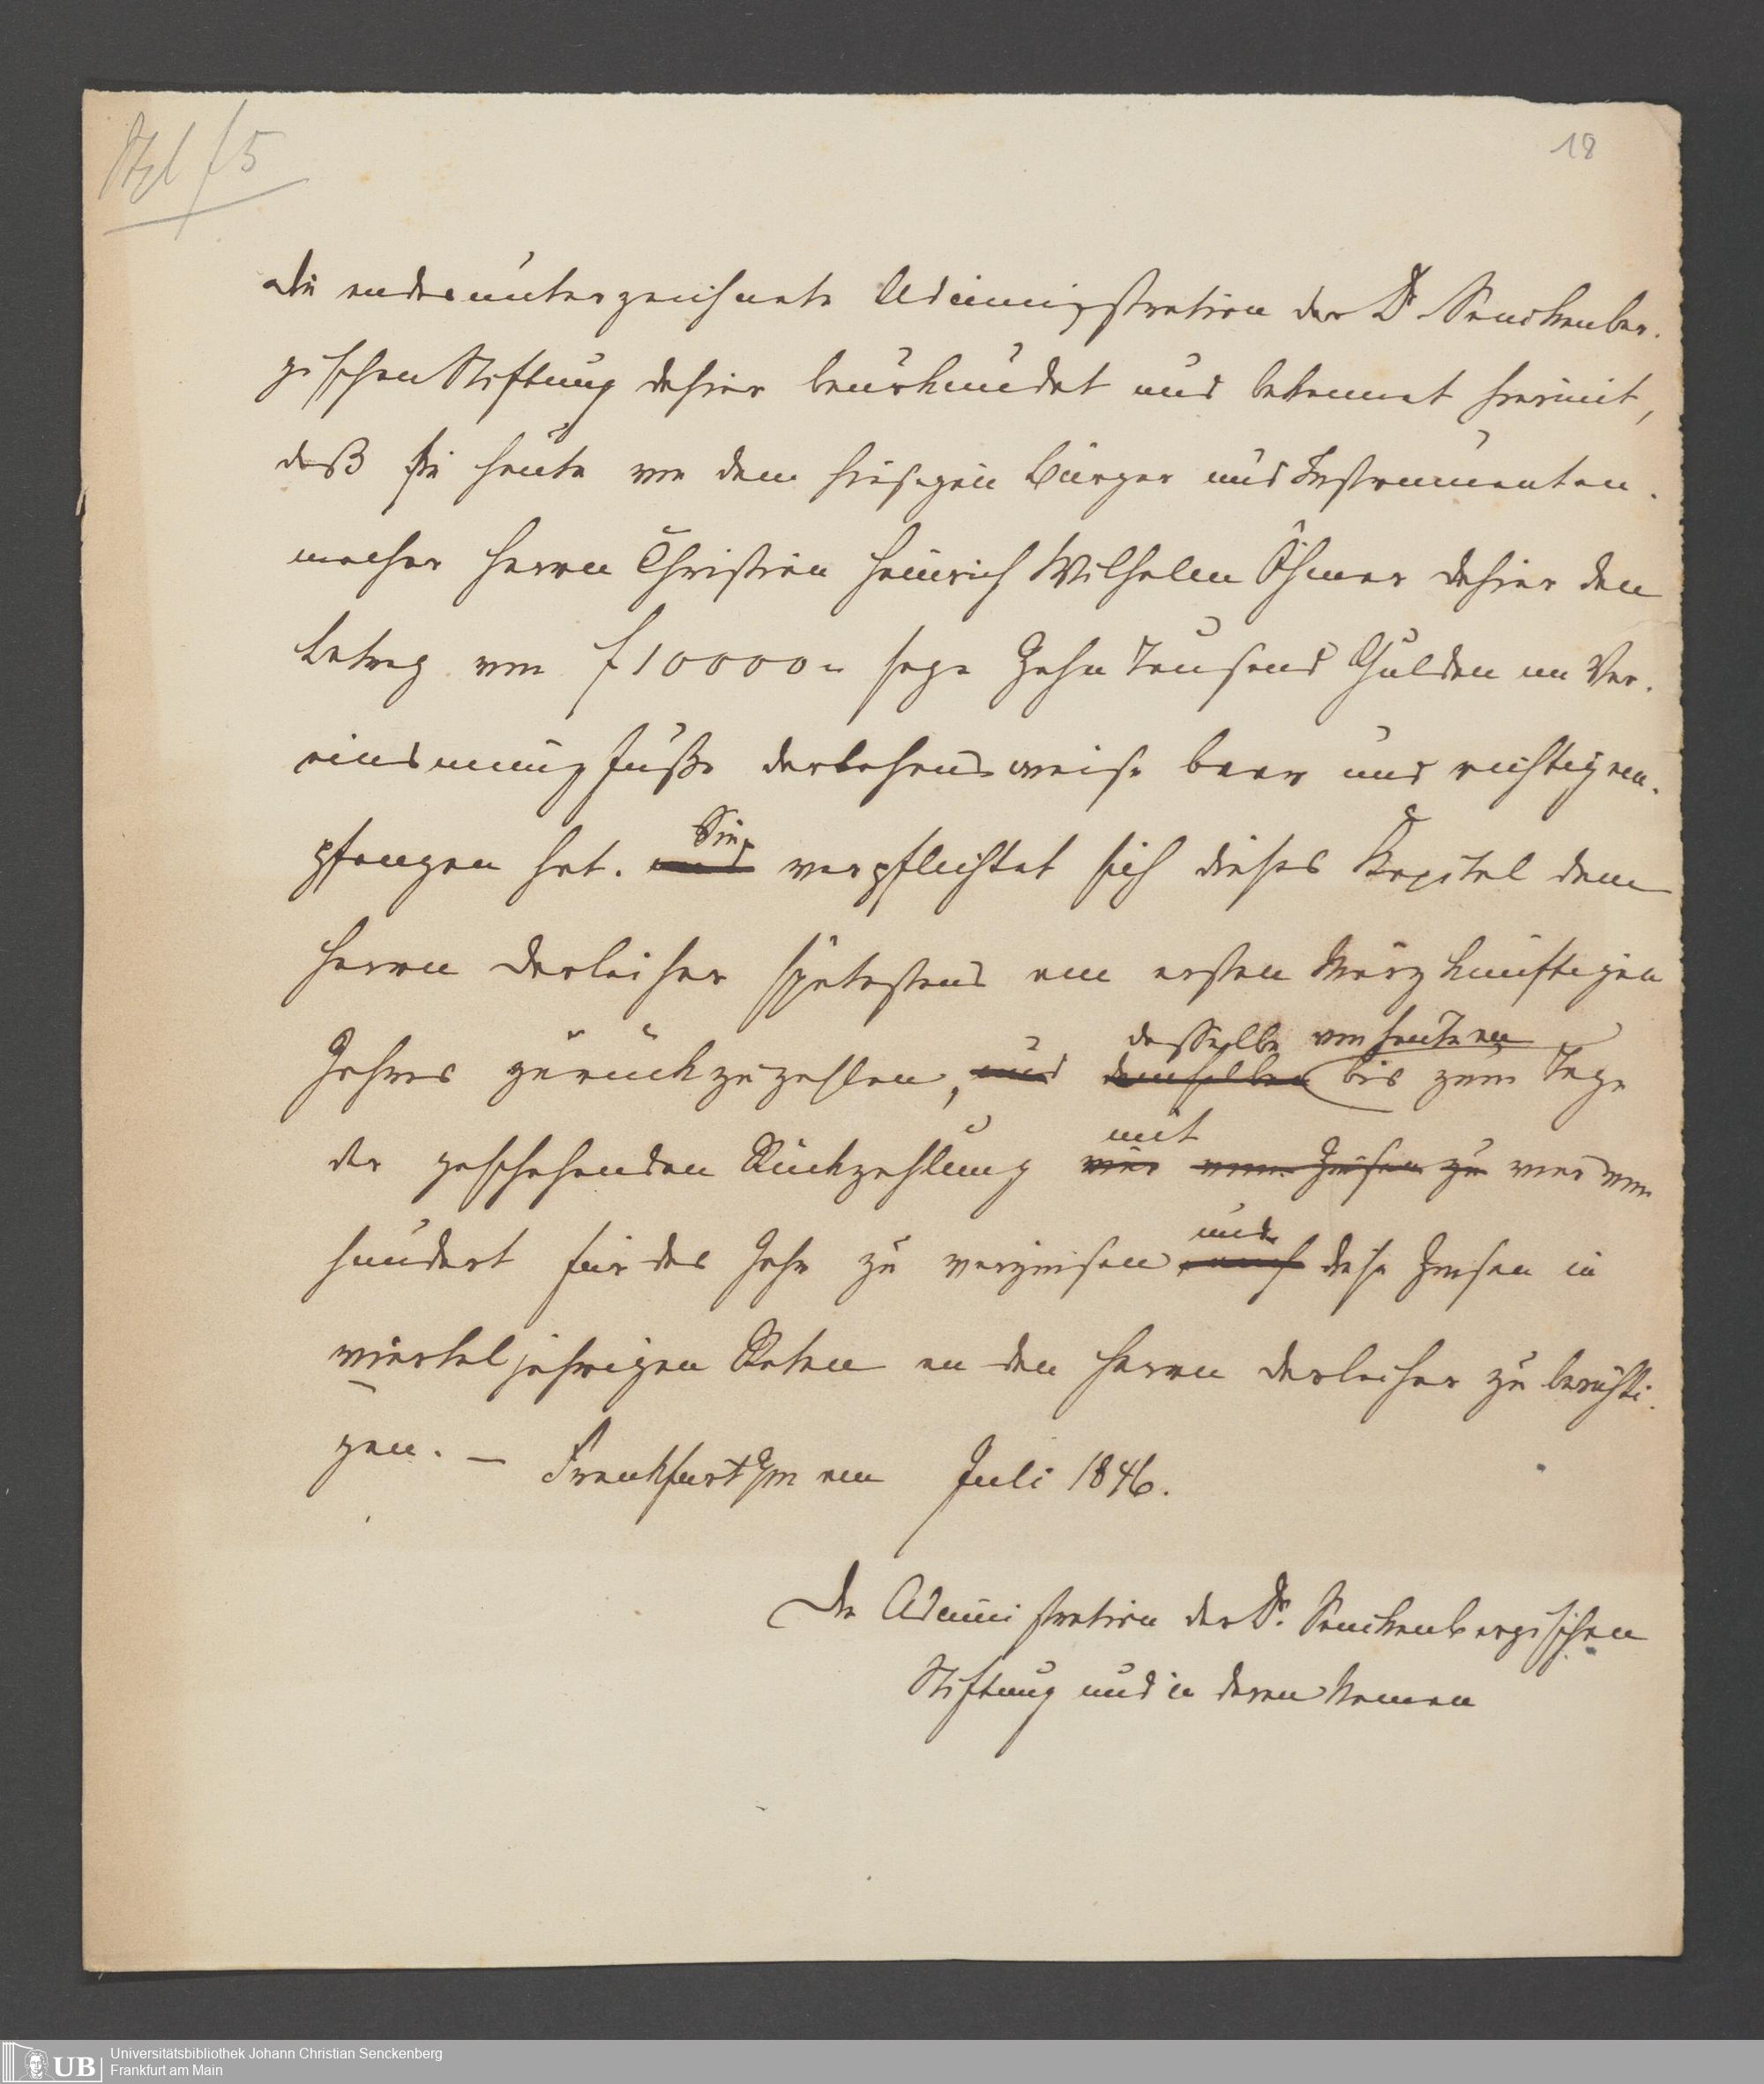 Stpl f 5
18
Die endesunterzeichnete Administration der Dr. Senckenber-
gischen Stiftung dahier beurkundet und bekennet hiermit,
daß sie heute von dem hiesigen Bürger und Instrumenten-
macher Herrn Christian Heinrich Wilhelm Öhmer dahier den
Betrag von f 10000 sage Zehn Tausend Gulden im Ver-
einsmünzfuße darlehensweise baar und richtig em-
pfangen hat. und Sie verpflichtet sich dieses Kapital dem
Herrn Darleiher spätestens am ersten März künftigen
Jahres zurückzuzahlen, und demselben dasselbe von heute an bis zum Tage
der geschehenden Rückzahlung mit vier vom Zinsen zu vier vom
hundert für das Jahr zu verzinsen auch und diese Zinsen in
vierteljährigen Raten an den Herrn Darleiher zu berichti-
gen. – Frankfurt a/m am Juli 1846.
Die Administration der Dr. Senckenbergischen
Stiftung und in deren Namen
UB Universitätsbibliothek Johann Christian Senckenberg
Frankfurt am Main